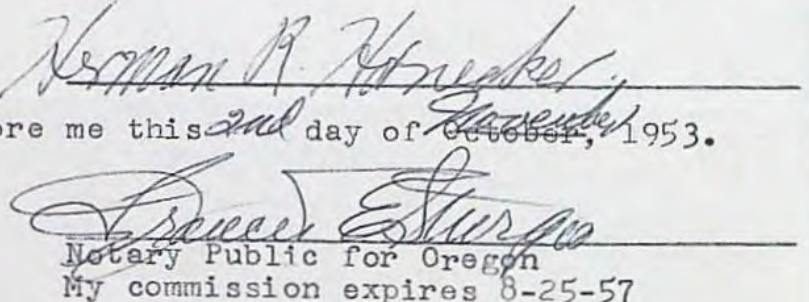 Herman R. Honecker
ore me this 2nd day of October, November 1953.
Frances E Sturges
Notary Public for Oregon
My commission expires 8-25-57